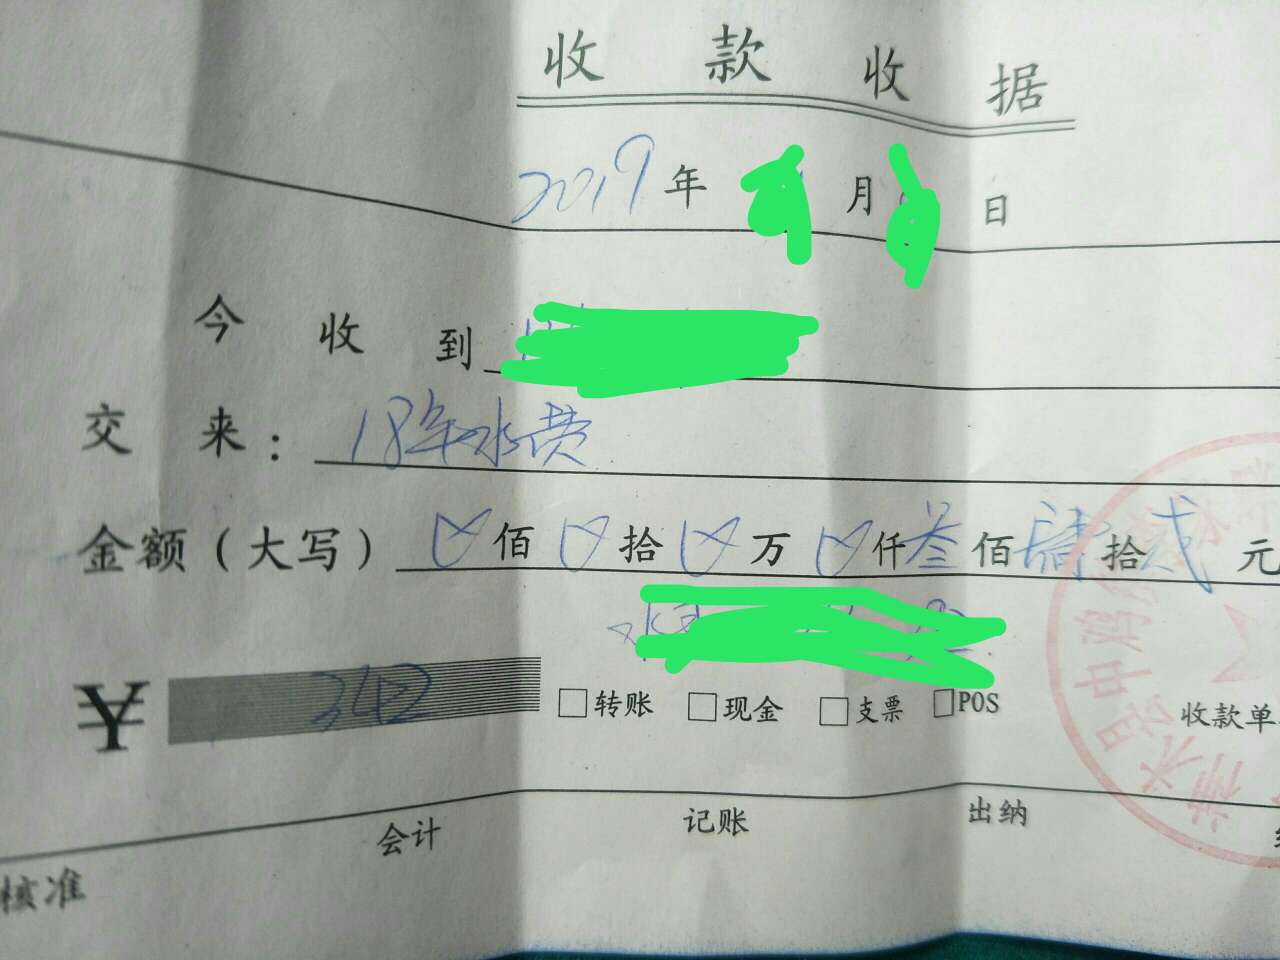 收款收据
2019年 月 日
今收到
交来：18年水费
金额（大写） 佰 拾 万 仟叁佰陆拾贰元
¥ □转账 □现金 □支票 □POS 收款单
会计 记账 出纳
核准